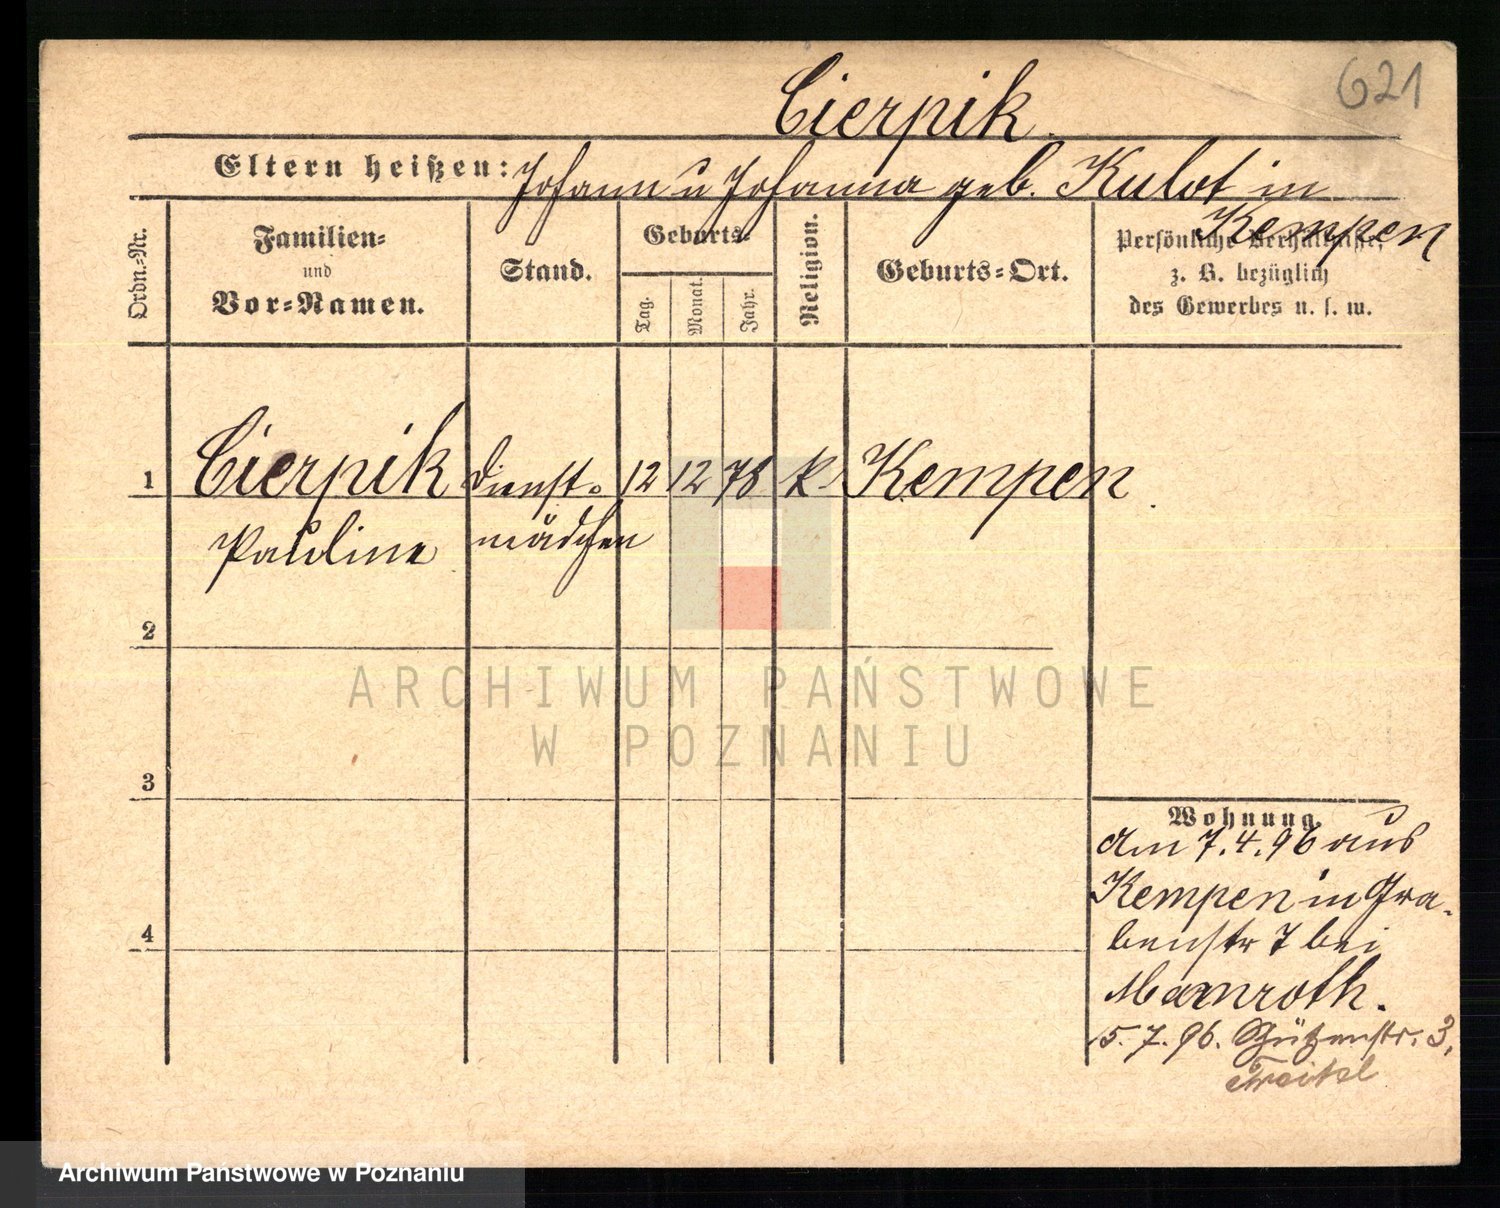 621
Cierpik.
Eltern heißen: Johann u Johanna geb. Kulot in
Kempen
Ordn.-Nr.
Familien-
und
Vor-Namen.
Stand.
Geburts-
Tag.
Monat.
Jahr.
Religion.
Geburts-Ort.
Persönliche Verhältnisse,
z. B. bezüglich
des Gewerbes u. s. w.
1 Cierpik Dienst- 12 12 78 k Kempen.
Pauline mädchen
2
ARCHIWUM PAŃSTWOWE
W POZNANIU
3
4
Wohnung.
Am 7.4.96 aus
Kempen in Gra-
benstr 7 bei
Mamroth.
5.7.96. Schützenstr. 3,
Archiwum Państwowe w Poznaniu